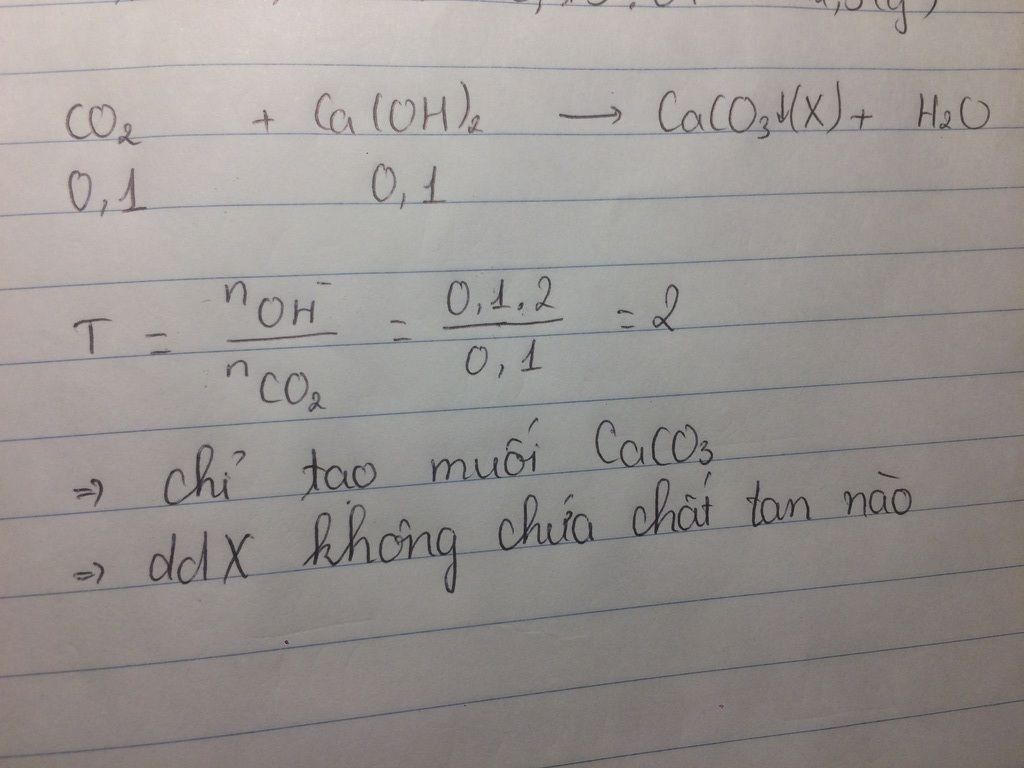 CO₂ + Ca(OH)₂ ⟶ CaCO₃↓(X) + H₂O
0,1 0,1
T = nOH⁻ / nCO₂ = 0,1.2 / 0,1 = 2
⇒ chỉ tạo muối CaCO₃
⇒ ddX không chứa chất tan nào